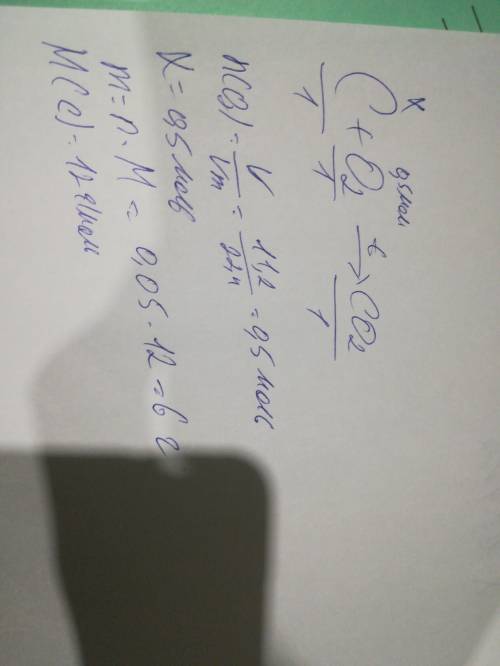 x 0,5 моль
C + O2 t→ CO2
1 1 1
n(O2) = V/Vm = 11,2/22,4 = 0,5 моль
X = 0,5 моль
m = n · M = 0,05 · 12 = 6 г
M(C) = 12 г/моль